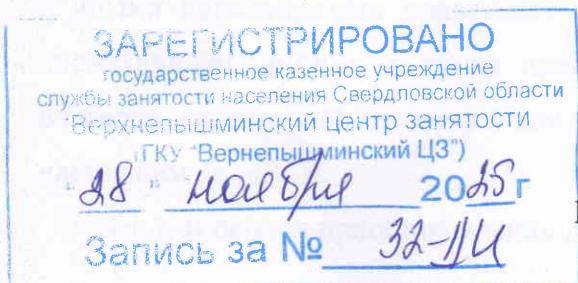 ЗАРЕГИСТРИРОВАНО
государственное казенное учреждение
службы занятости населения Свердловской области
"Верхнепышминский центр занятости
(ГКУ "Вернепышминский ЦЗ")
"28" ноября 2025 г
Запись за № 32-ДИ